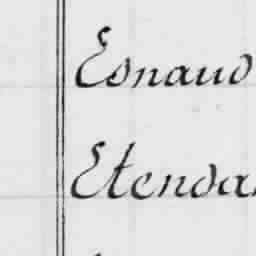 Esnaud
Etenda